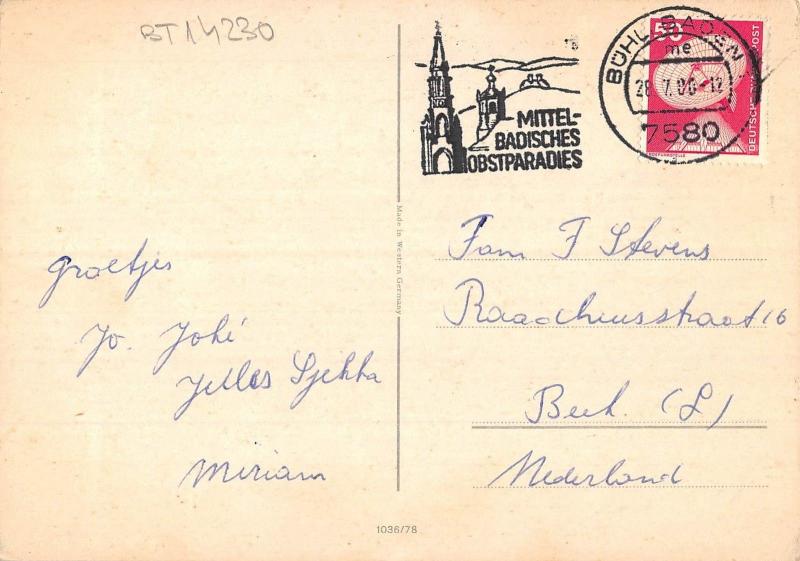 BT14230
MITTEL-
BADISCHES
OBSTPARADIES
BÜHL BADEN
me
28.7.80-12
7580
50
DEUTSCHE BUNDESPOST
Made in Western Germany
groetjes
Jo. Johé
Jelles Sjekka
Miriam
Fam F Stevens
16
Beek. (L)
Nederland
1036/78